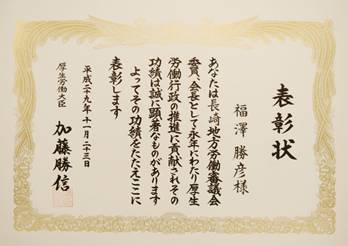 表彰状
福澤勝彦様
あなたは長崎地方労働審議会
委員、会長として永年にわたり厚生
労働行政の推進に貢献されその
功績は誠に顕著なものがあります
よってその功績をたたえここに
表彰します
平成二十九年十一月二十三日
厚生労働大臣
加藤勝信